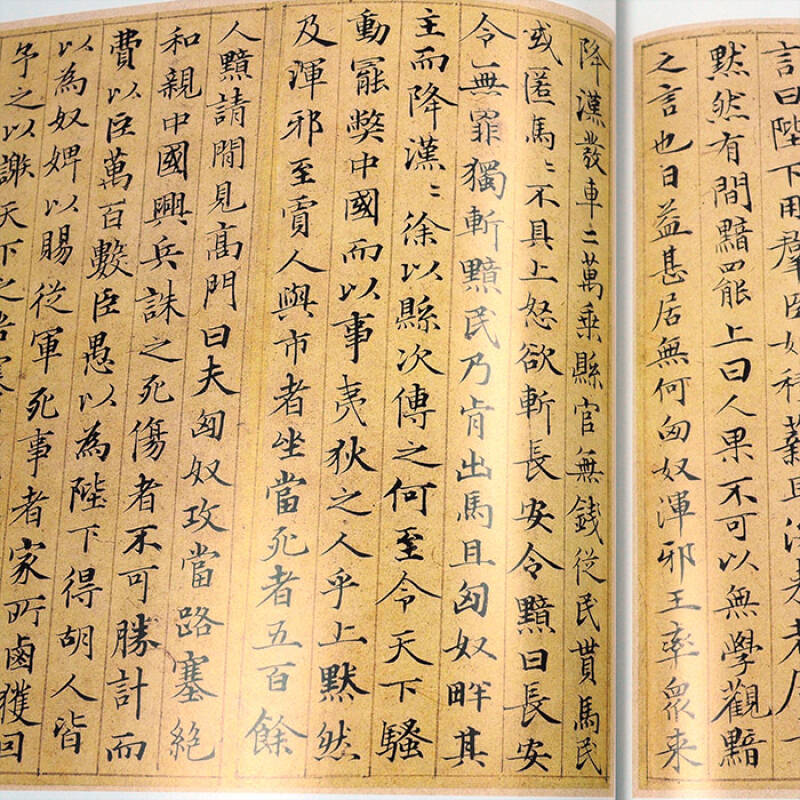 言曰陛下用羣臣如積薪
默然有間黯罷上曰人果不可以無學觀黯
之言也日益甚居無何匈奴渾邪王率衆来
降漢發車二萬乗縣官無錢従民貰馬民
或匿馬〻不具上怒欲斬長安令黯曰長安
令無罪獨斬黯民乃肯出馬且匈奴畔其
主而降漢〻徐以縣次傳之何至令天下騷
動罷弊中國而以事夷狄之人乎上默然
及渾邪至賈人與市者坐當死者五百餘
人黯請間見高門曰夫匈奴攻當路塞絶
和親中國興兵誅之死傷者不可勝計而
費以臣萬百數臣愚以為陛下得胡人皆
以為奴婢以賜従軍死事者家所鹵獲回
予之以謝天下之苦塞